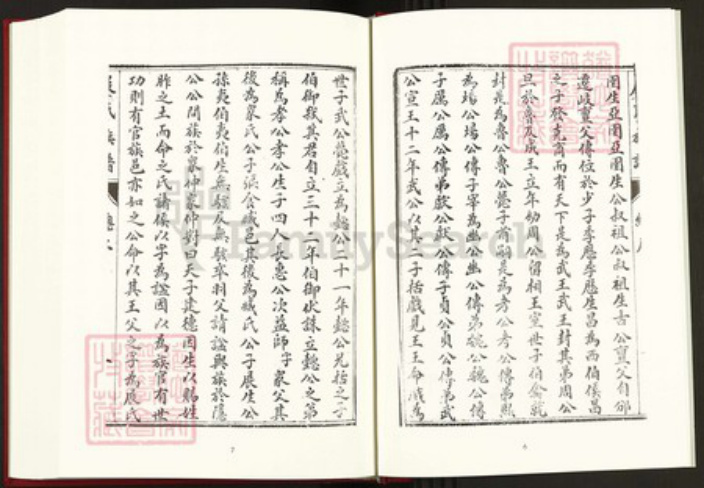 圉生亞圉亞圉生公叔祖公叔祖生古公亶父自邠
遷岐亶父傳位於少子季歷季歷生昌為西伯侯昌
之子發克商而有天下是為武王武王封其弟周公
旦於魯及成王立年幼周公留相王室世子伯禽就
封是為魯公魯公薨子酋嗣是為考公考公傳弟熙
為煬公煬公傳子宰為幽公幽公傳弟㵒公㵒公傳
子厲公厲公傳弟獻公獻公傳子貞公貞公傳弟武
公宣王十二年武公以其二子括戲見王王命戲為
世子武公薨戲立為懿公二十一年懿公兄括之子
伯御弒其君自立三十二年伯御伏誅立懿公之弟
稱為孝公孝公生子四人長惠公次益師字眾父其
後為眾氏公子彄食臧邑其後為臧氏公子展生公
孫夷伯夷伯生無駭及無駭卒羽父請諡與族於隱
公公問族於眾仲眾仲對曰天子建德因生以賜姓
胙之土而命之氏諸侯以字為諡因以為族官有世
功則有官族邑亦如之公命以其王父之字為展氏
展氏族譜
7
6
FamilySearch